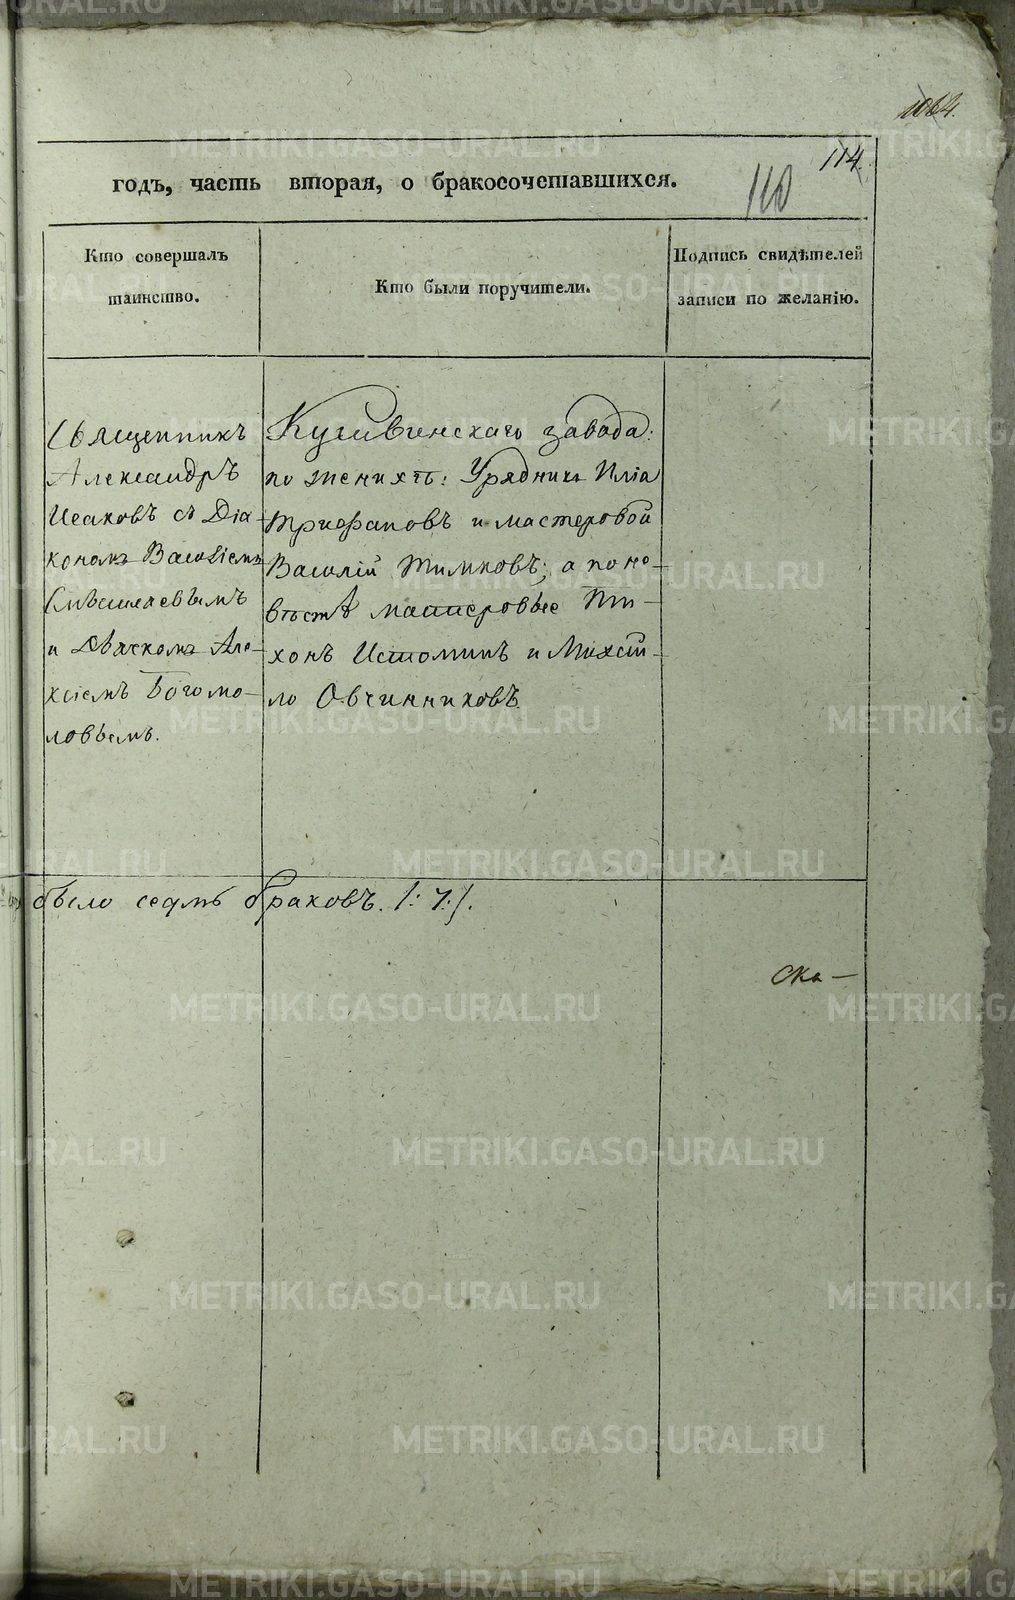 114.
110
годъ, часть вторая, о бракосочетавшихся.
Кто совершалъ
таинство.
Кто были поручители.
Подпись свидѣтелей
записи по желанію.
Священникъ
Александръ
Исаковъ съ Діа-
кономъ Василіемъ
и Дьячкомъ Але-
ксіемъ Богомо-
ловымъ.
Кушвинскаго завода:
по женихѣ: Урядникъ Илія
Трифановъ и мастеровой
Василій Тимковъ; а по не-
вѣстѣ мастеровые Ти-
хонъ Истоминъ и Михай-
ло Овчинниковъ
было седмь браковъ. /:7:/.
Ска-
METRIKI.GASO-URAL.RU